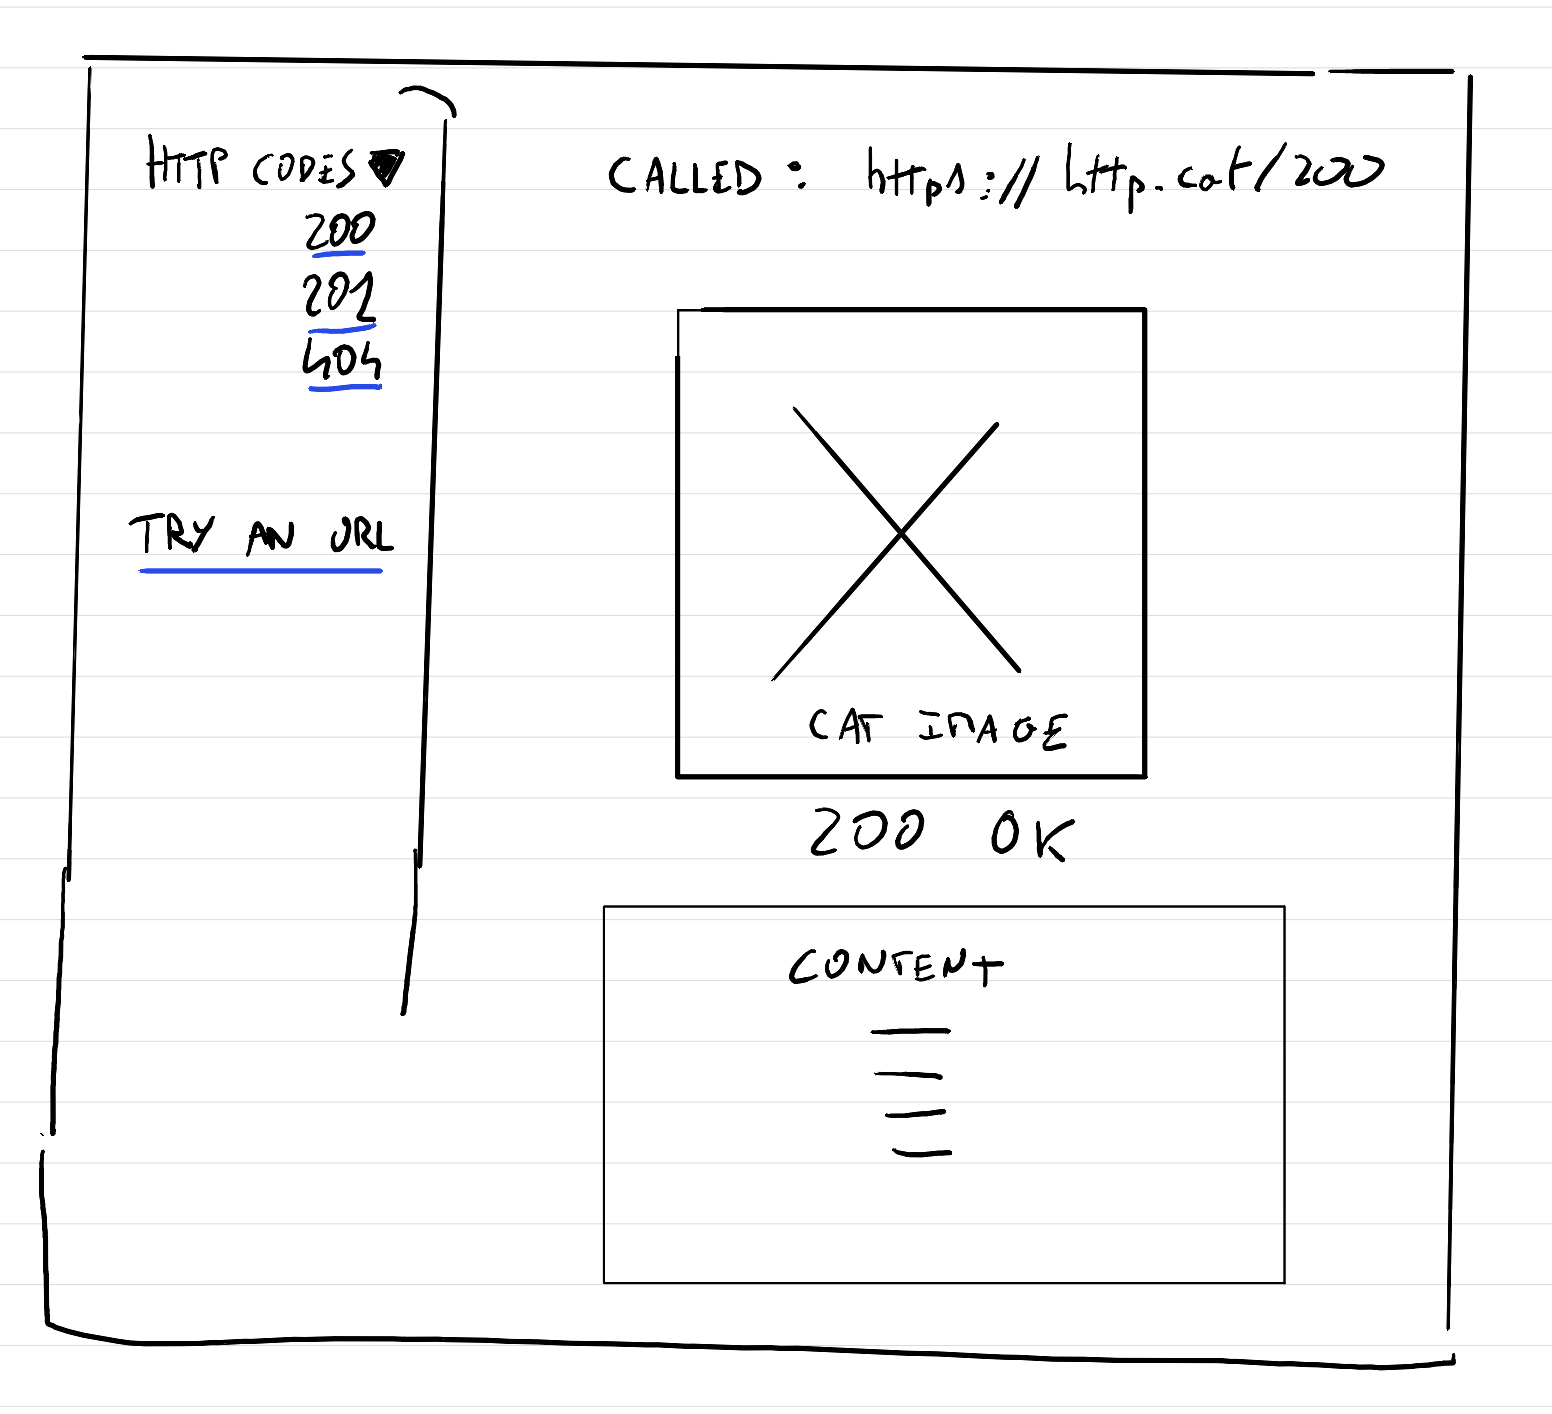 HTTP CODES
200
201
404
TRY AN URL
CALLED : https://http.cat/200
CAT IMAGE
200 OK
CONTENT